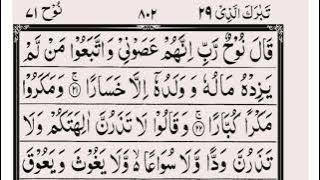 تَبٰرَكَ الَّذِیْ ٢٩ ٨٠٢ نُوْح ٧١
قَالَ نُوْحٌ رَّبِّ اِنَّهُمْ عَصَوْنِیْ وَاتَّبَعُوْا مَنْ لَّمْ
یَزِدْهُ مَالُهٗ وَ وَلَدُهٗۤ اِلَّا خَسَارًا ۝٢١ وَمَكَرُوْا
مَكْرًا كُبَّارًا ۝٢٢ وَقَالُوْا لَا تَذَرُنَّ اٰلِهَتَكُمْ وَلَا
تَذَرُنَّ وَدًّا وَّلَا سُوَاعًا ۙ۬ وَّلَا یَغُوْثَ وَیَعُوْقَ